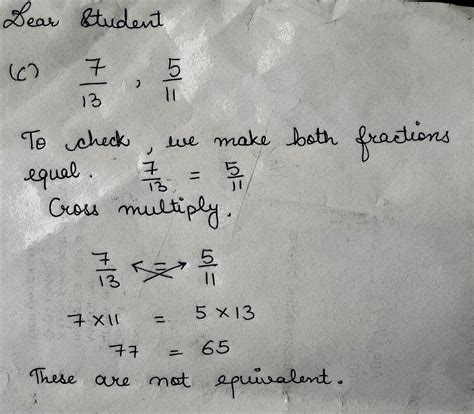 Dear Student
(c) 7/13 , 5/11
To check, we make both fractions
equal. 7/13 = 5/11
Cross multiply.
7/13 = 5/11
7 × 11 = 5 × 13
77 = 65
These are not equivalent.